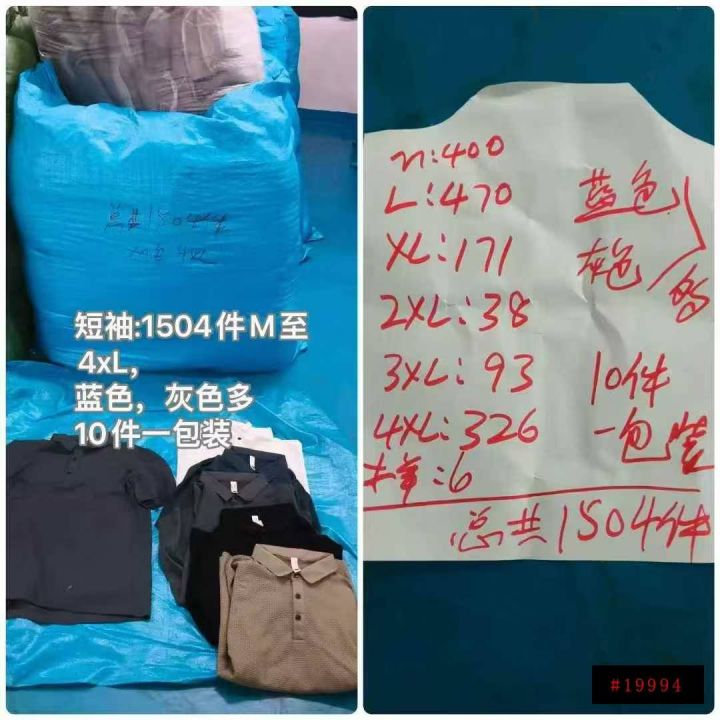 短袖:1504件M至
4xL，
蓝色，灰色多
10件一包装
M:400
L:470 蓝色
XL:171 灰色 多
2XL:38
3XL:93 10件
4XL:326 一包装
:6
总共1504件
#19994